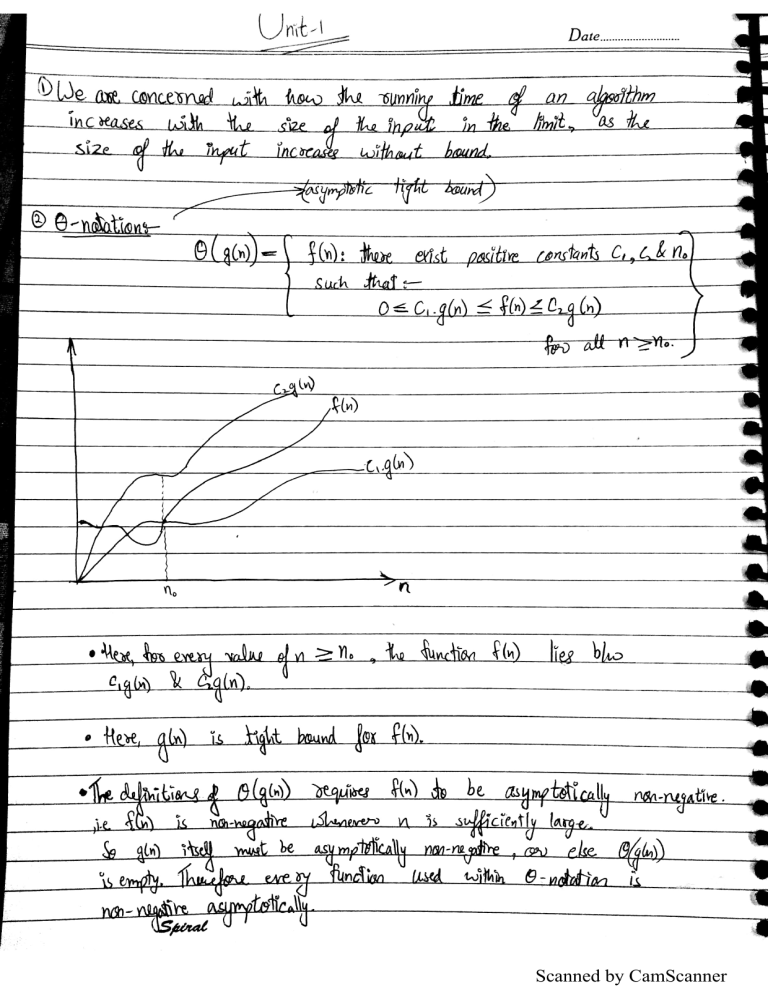 Unit-1
Date..............................
① We are concerned with how the running time of an algorithm
increases with the size of the input in the limit, as the
size of the input increases without bound.
(asymptotic tight bound)
② Θ-notations
Θ(g(n)) = { f(n): there exist positive constants C₁, C₂ & n₀
such that :-
0 ≤ C₁.g(n) ≤ f(n) ≤ C₂g(n)
for all n ≥ n₀. }
C₂g(n)
f(n)
C₁.g(n)
n₀
n
• Here, for every value of n ≥ n₀, the function f(n) lies b/w
C₁g(n) & C₂g(n).
• Here, g(n) is tight bound for f(n).
• The definitions of Θ(g(n)) requires f(n) to be asymptotically non-negative.
i.e f(n) is non-negative whenever n is sufficiently large.
So g(n) itself must be asymptotically non-negative, or else Θ(g(n))
is empty. Therefore every function used within Θ-notation is
non-negative asymptotically.
Spiral
Scanned by CamScanner